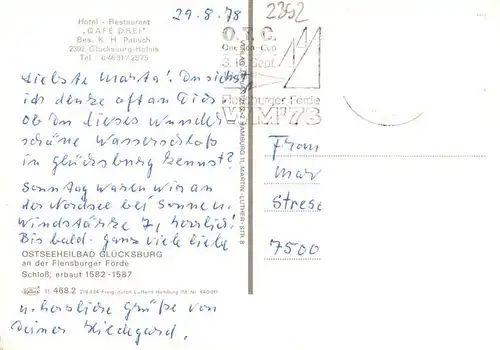 29.8.78
2392
Hotel - Restaurant
"CAFÉ DREI"
Bes. K. H. Patisch
2392 Glücksburg-Holnis
Tel. 04631/2575
O.T.C.
One Ton-Cup
3.-16. Sept.
Flensburger Förde
WM '73
Liebste Marta! Du siehst
ich denke oft an Dich
ob Du dieses wunder
schöne Wasserschloß
in Glücksburg kennst?
Sonntag waren wir an
der Nordsee bei Sonne u.
Windstärke 7, herrlich!
Bis bald. ganz viele liebe
OSTSEEHEILBAD GLÜCKSBURG
an der Flensburger Förde
Schloß; erbaut 1582-1587
11 468.2
u. herzliche Grüße von
Deiner Hildegard.
HAMBURG 11, MARTIN-LUTHER-STR. 8
Frau
Mar
Strese
7500